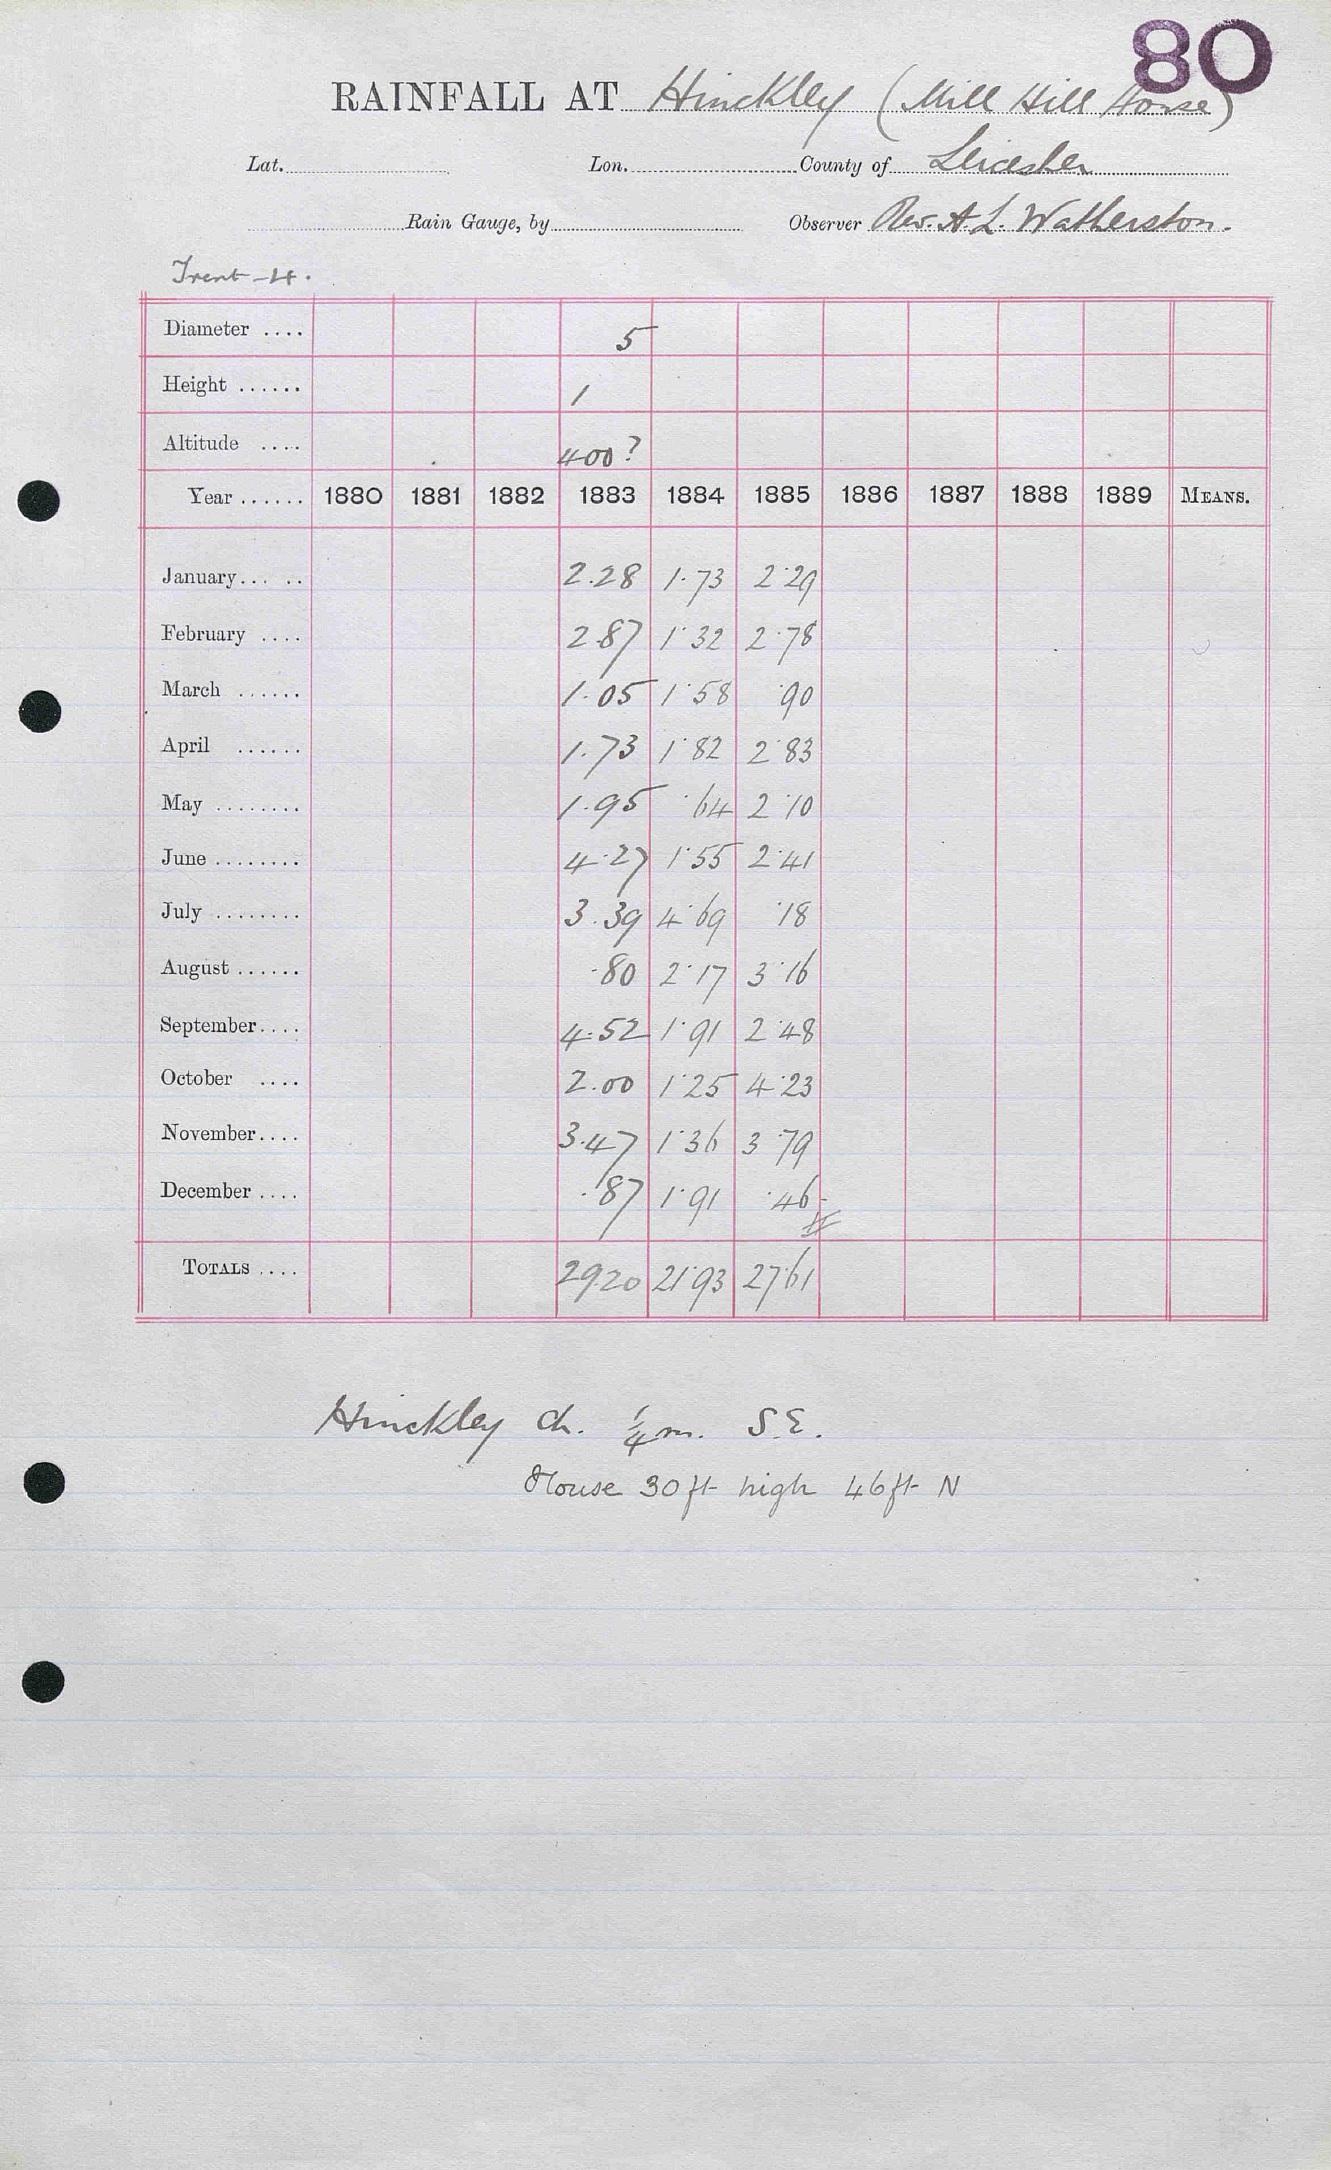 80
RAINFALL AT Hinckley (Mill Hill House)
Lat. Lon. County of Leicester
Rain Gauge, by Observer Rev. A. L. Watherston.
Trent - 4.
Diameter .... 5
Height ...... 1
Altitude .... 400?
Year ...... 1880 1881 1882 1883 1884 1885 1886 1887 1888 1889 MEANS.
January... .. 2.28 1.73 2.29
February .... 2.87 1.32 2.78
March ...... 1.05 1.58 .90
April ...... 1.73 1.82 2.83
May ........ 1.95 .64 2.10
June ........ 4.27 1.55 2.41
July ........ 3.39 4.69 .18
August ...... .80 2.17 3.16
September.... 4.52 1.91 2.48
October .... 2.00 1.25 4.23
November.... 3.47 1.36 3.79
December .... .87 1.91 .46
TOTALS .... 29.20 21.93 27.61
Hinckley Ch. 1/4 m. S.E.
House 30 ft high 46 ft N